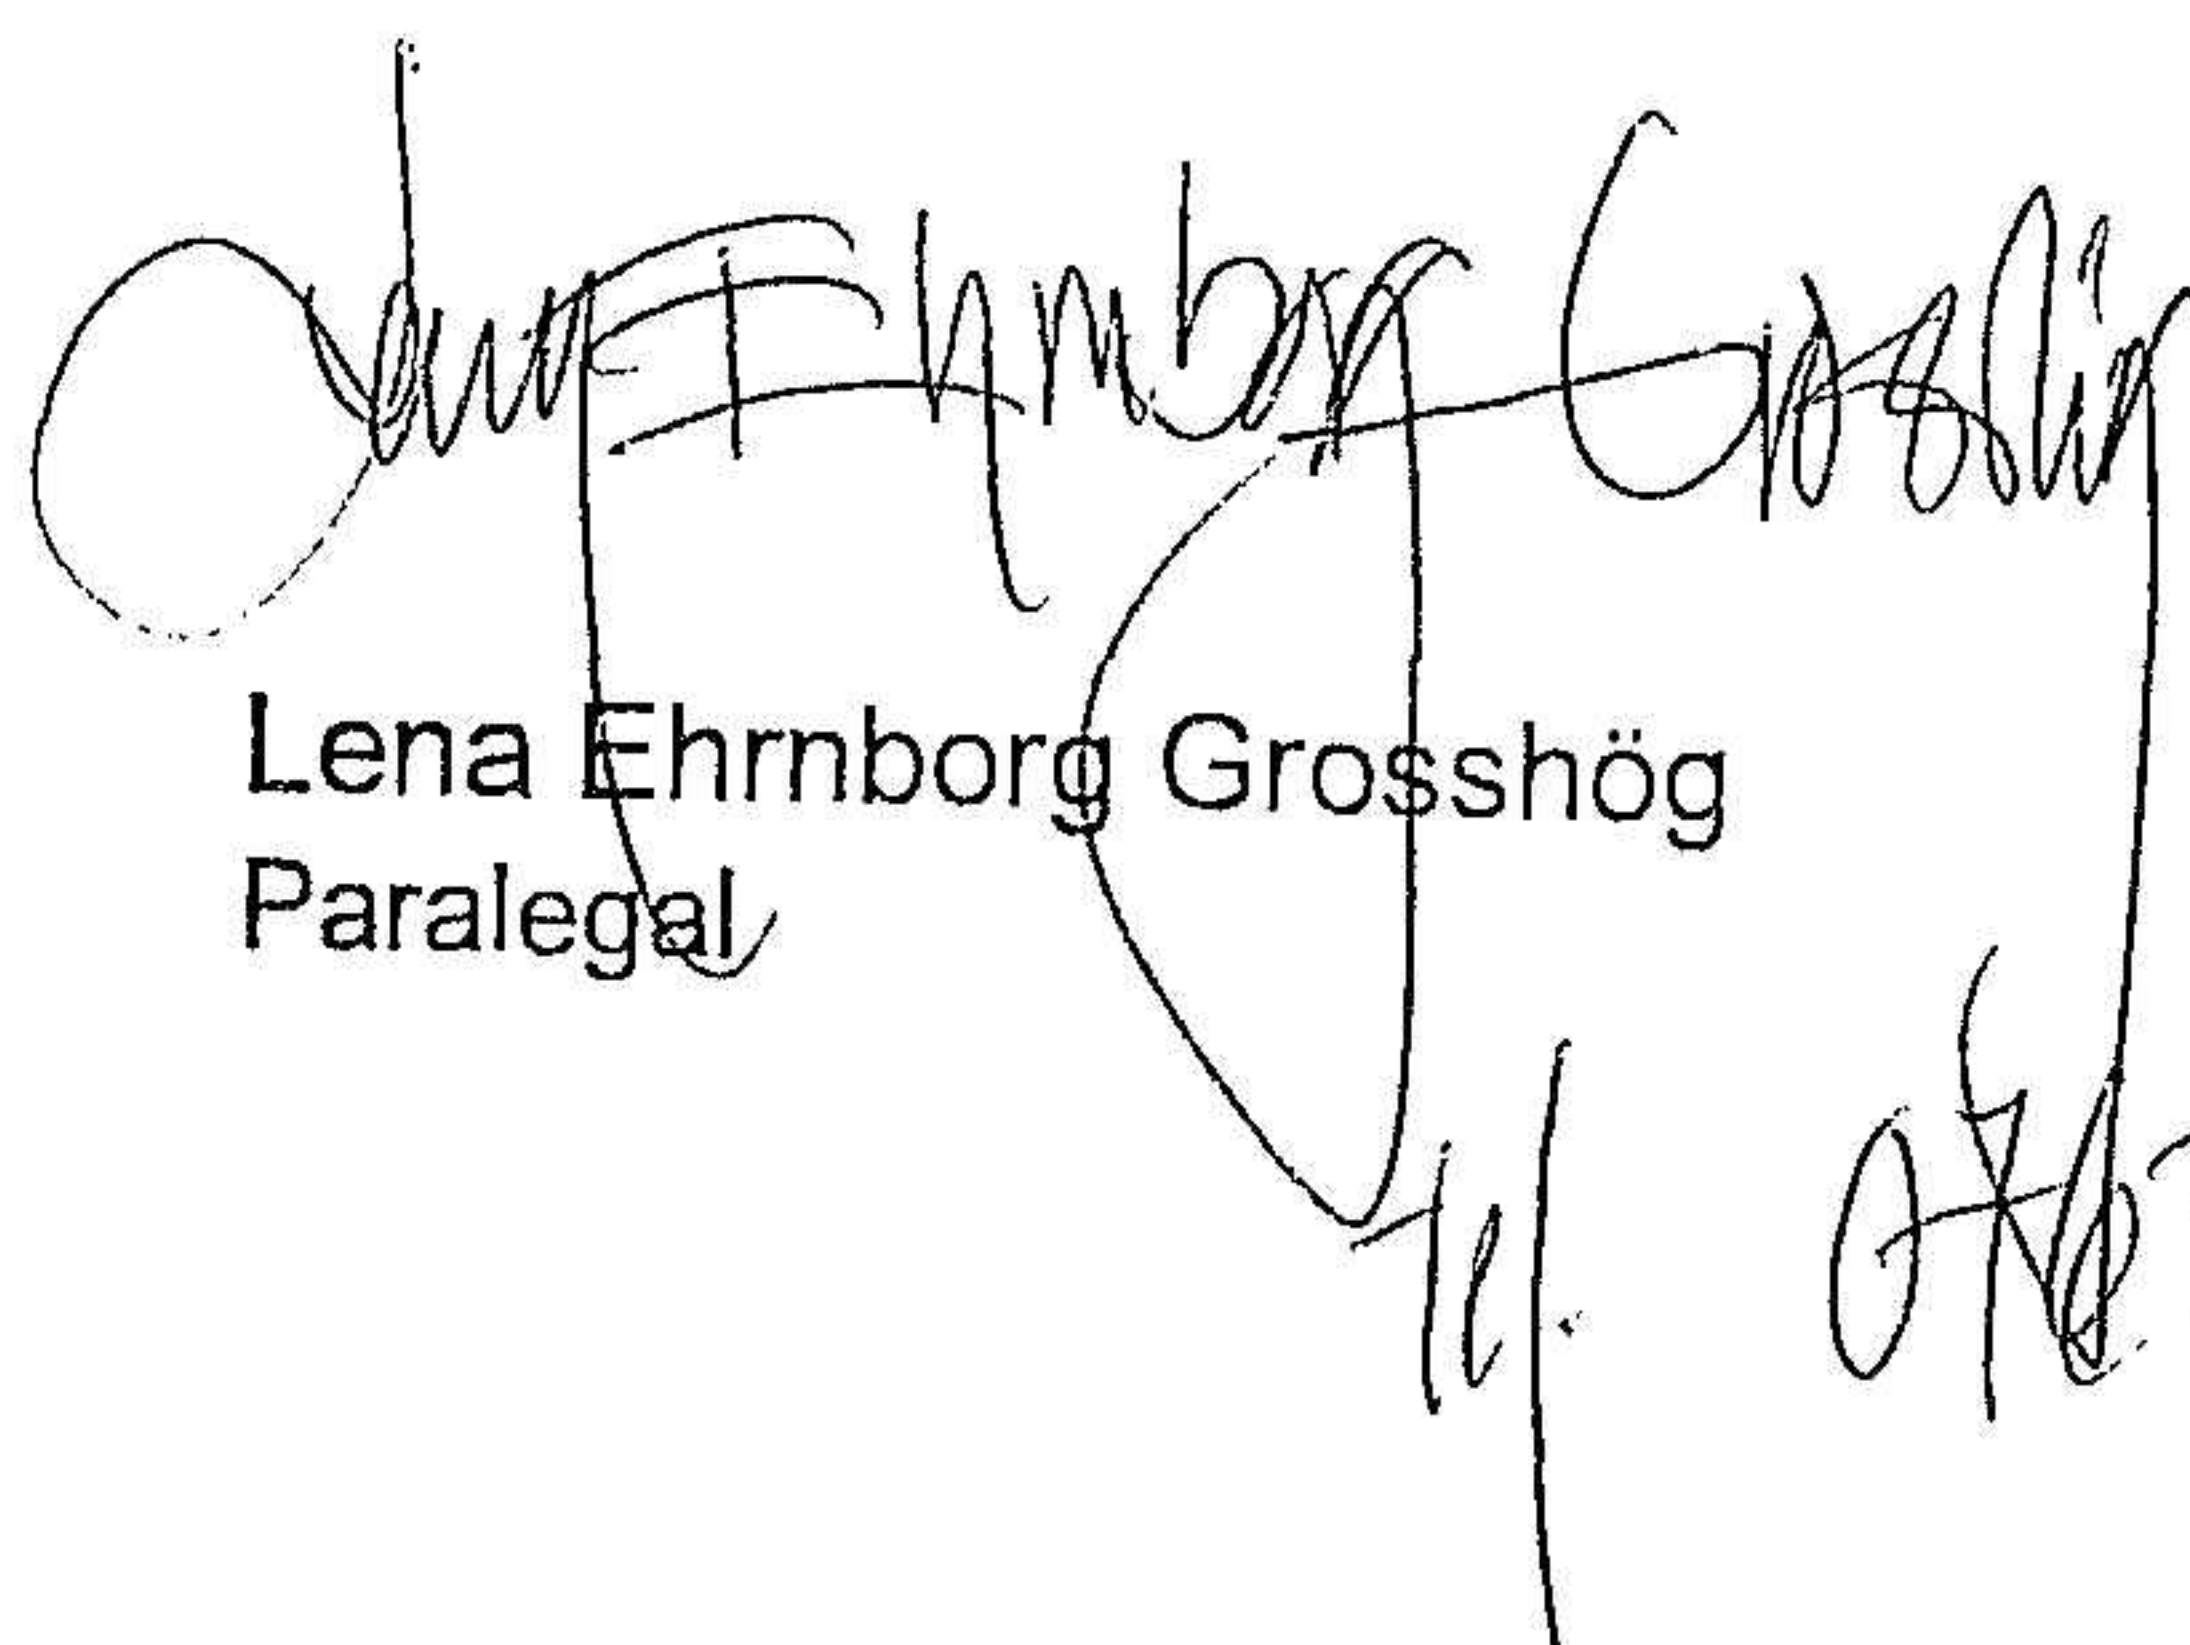 Lena Ehrnborg Grosshög
Lena Ehrnborg Grosshög
Paralegal
Tel.